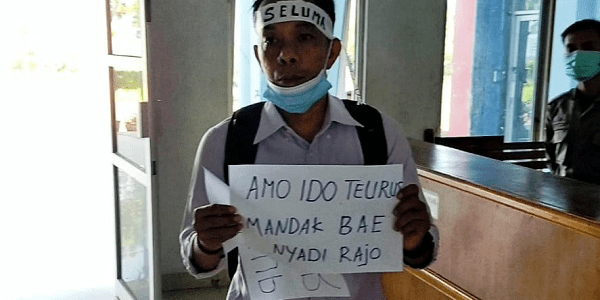 SELUMA
AMO IDO TEURUS
MANDAK BAE
NYADI RAJO